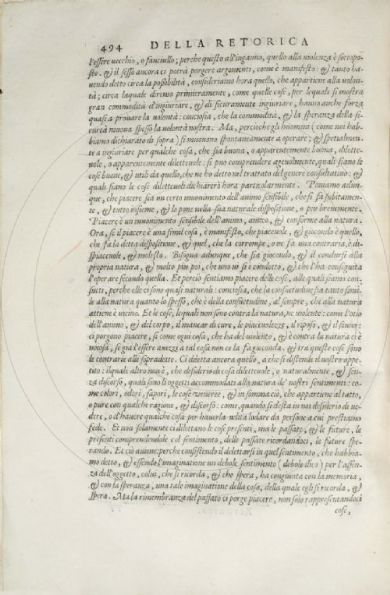 494 DELLA RETORICA
l'essere vecchio, o fanciullo; perche questo all'inganno, quello alla violenza è sottopo-
sto. & il sesso ancora ci potrà porgere argomenti, come è manifesto: & tanto ha-
vendo detto circa la possibilità, consideriamo hora quello, che appartiene alla volun-
tà; circa laquale diremo primieramente, come quelle cose, per lequali si mostra
gran commodità d'ingiuriare, & di sicuramente ingiuriare, hanno anche forza
quasi a provare la volontà: conciosia, che la commodità, & la speranza della si-
curtà muova spesso la volontà nostra. Ma, percioche gli huomini (come noi hab-
biamo dichiarato di sopra) si muovono spontaneamente a operare; & spetialmen-
te a ingiuriare per qualche cosa, che sia buona, o apparentemente buona, dilette-
vole, o apparentemente dilettevole: si può comprendere agevolmente, quali siano le
cose buone, & utili da quello, che ne ho detto nel trattato del genere consultativo: &
quali siano le cose dilettevoli dichiarerò hora particolarmente. Poniamo adun-
que, che piacere sia un certo movimento dell'animo sensibile, che si fa subitamen-
te, & tutto insieme, & lo pone nella sua naturale dispositione, o più brevemente.
Piacere è un movimento sensibile dell'animo, unito, & conforme alla natura.
Ora, se il piacere è una simil cosa, è manifesto, che piacevole, & giocondo è quello,
che fa la detta dispositione, & quel, che la corrompe, o ne fa una contraria, è di-
spiacevole, & molesto. Bisogna adunque, che sia giocondo, & il condursi alla
propria natura, & molto più poi, che uno vi si è condotto, & che l'ha conseguita
l'operare secondo quella. Et perciò sentiamo piacere delle cose, alle quali siamo as-
sueti, perche elle ci sono quasi naturali: conciosia, che la consuetudine sia tanto simi-
le alla natura quanto lo spesso, che è della consuetudine, al sempre, che alla natura
attiene è vicino. Et le cose, lequali non sono contra la natura, ne violente: come l'otio
dell'animo, & del corpo, il mancar di cure, le piacevolezze, il riposo, & il sonno:
ci porgono piacere, si come ogni cosa, che ha del violento, & è contra la natura ci è
noiosa, se già l'essere avezzi a tal cosa non ce la fa gioconda. & tra queste cose sono
le contrarie alle sopradette. Ci diletta ancora quello, a che si distende il nostro appe-
tito: ilquale altro non è, che desiderio di cosa dilettevole, o naturalmente, & sen-
za discorso, quali sono li oggetti accommodati alla natura de' nostri sentimenti: co-
me colori, odori, sapori, le cose veneree, & in somma ciò, che appartiene al tatto,
o pure con qualche ragione, & discorso: come, quando si desta in noi desiderio di ve-
dere, o d'havere qualche cosa per haverla udita lodare da persone a cui prestiamo
fede. Et non solamente ci dilettano le cose presenti, ma le passate, & le future, le
presenti comprendendole col sentimento, delle passate ricordandoci, le future spe-
rando. Et ciò aviene, perche consistendo il dilettarsi in quel sentimento, che habbia-
mo detto, & essendo l'imaginatione un debole sentimento (debole dico) per l'assen-
za dell'oggetto, colui, che si ricorda, & che spera, ha congiunta con la memoria,
& con la speranza, una tale imaginatione della cosa, della quale egli si ricorda, &
spera. Ma la rimembranza del passato ci porge piacere, non solo rappresentandoci
cose,